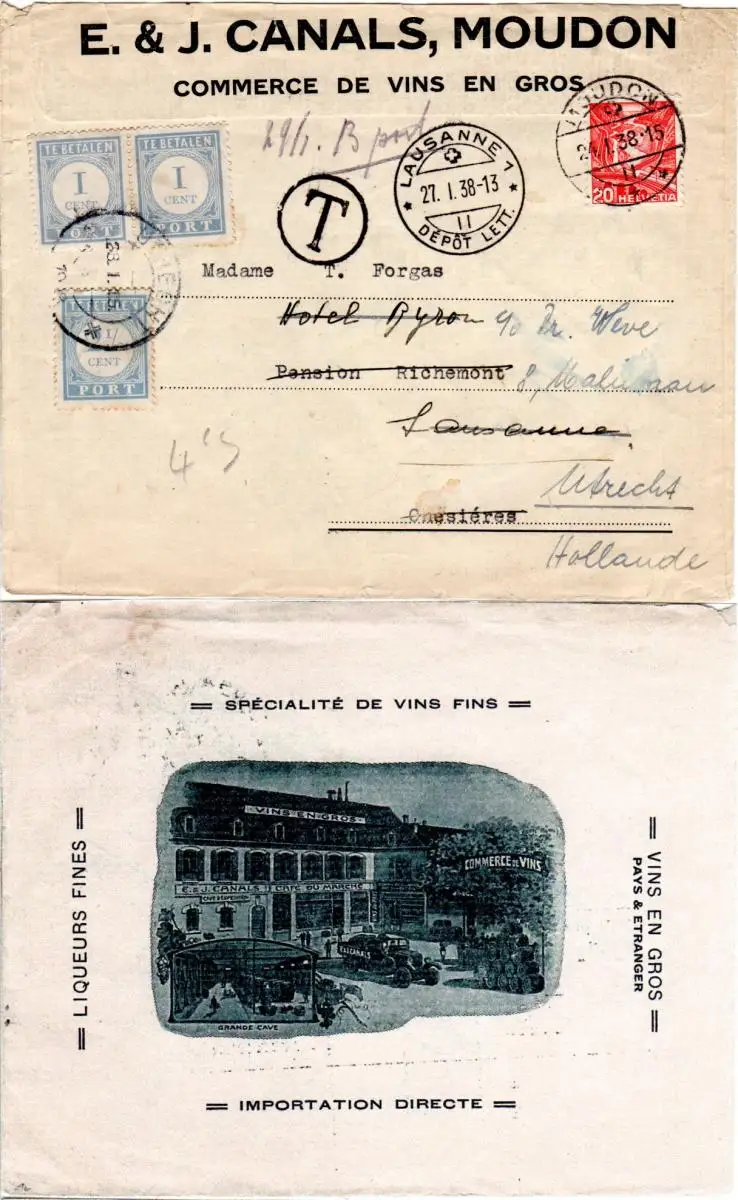 E. & J. CANALS, MOUDON
COMMERCE DE VINS EN GROS
29/1. B port
MOUDON
24.I.38-15
20 HELVETIA
LAUSANNE 1
27. I. 38-13
II
DÉPÔT LETT.
T
TE BETALEN
1
CENT
PORT
TE BETALEN
1
CENT
PORT
28.1.
CENT
PORT
Madame T. Forgas
Hotel Byron c/o Dr. Weve
Pension Richemont 8,
Lausanne
Utrecht
Chesières
Hollande
SPÉCIALITÉ DE VINS FINS
LIQUEURS FINES
VINS EN GROS
PAYS & ETRANGER
VINS EN GROS
COMMERCE DE VINS
E. & J. CANALS CAFÉ DU MARCHÉ
E&J.CANALS
GRANDE CAVE
IMPORTATION DIRECTE